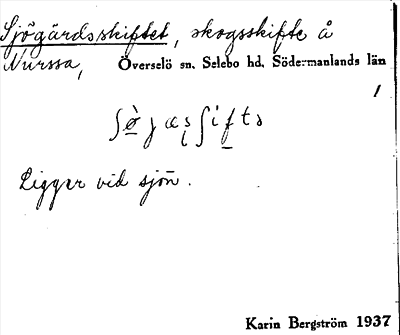 Sjögärdsskiftet, skogsskifte å
Nurssa, Överselö sn. Selebo hd. Södermanlands län
Ligger vid sjön.
Karin Bergström 1937